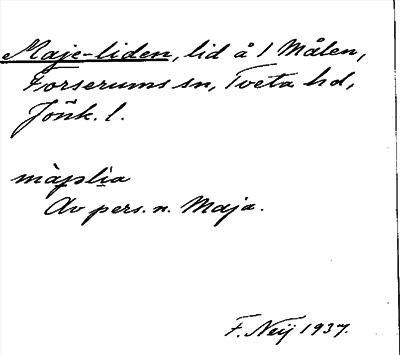 Maje-liden, lid å 1 Målen,
Forserums sn, Tveta hd,
Jönk. l.
màjslia
Av pers. n. Maja.
F. Neij 1937.